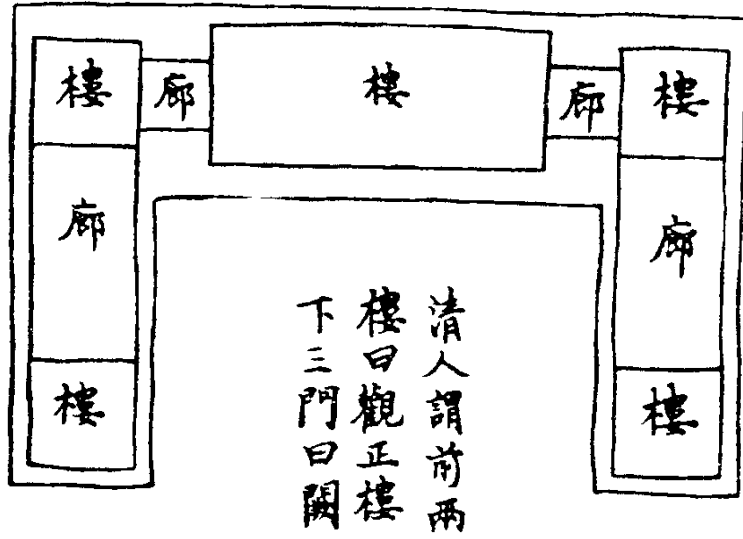 樓
廊
樓
廊
樓
廊
廊
樓
樓
清人謂前兩
樓曰觀正樓
下三門曰闕